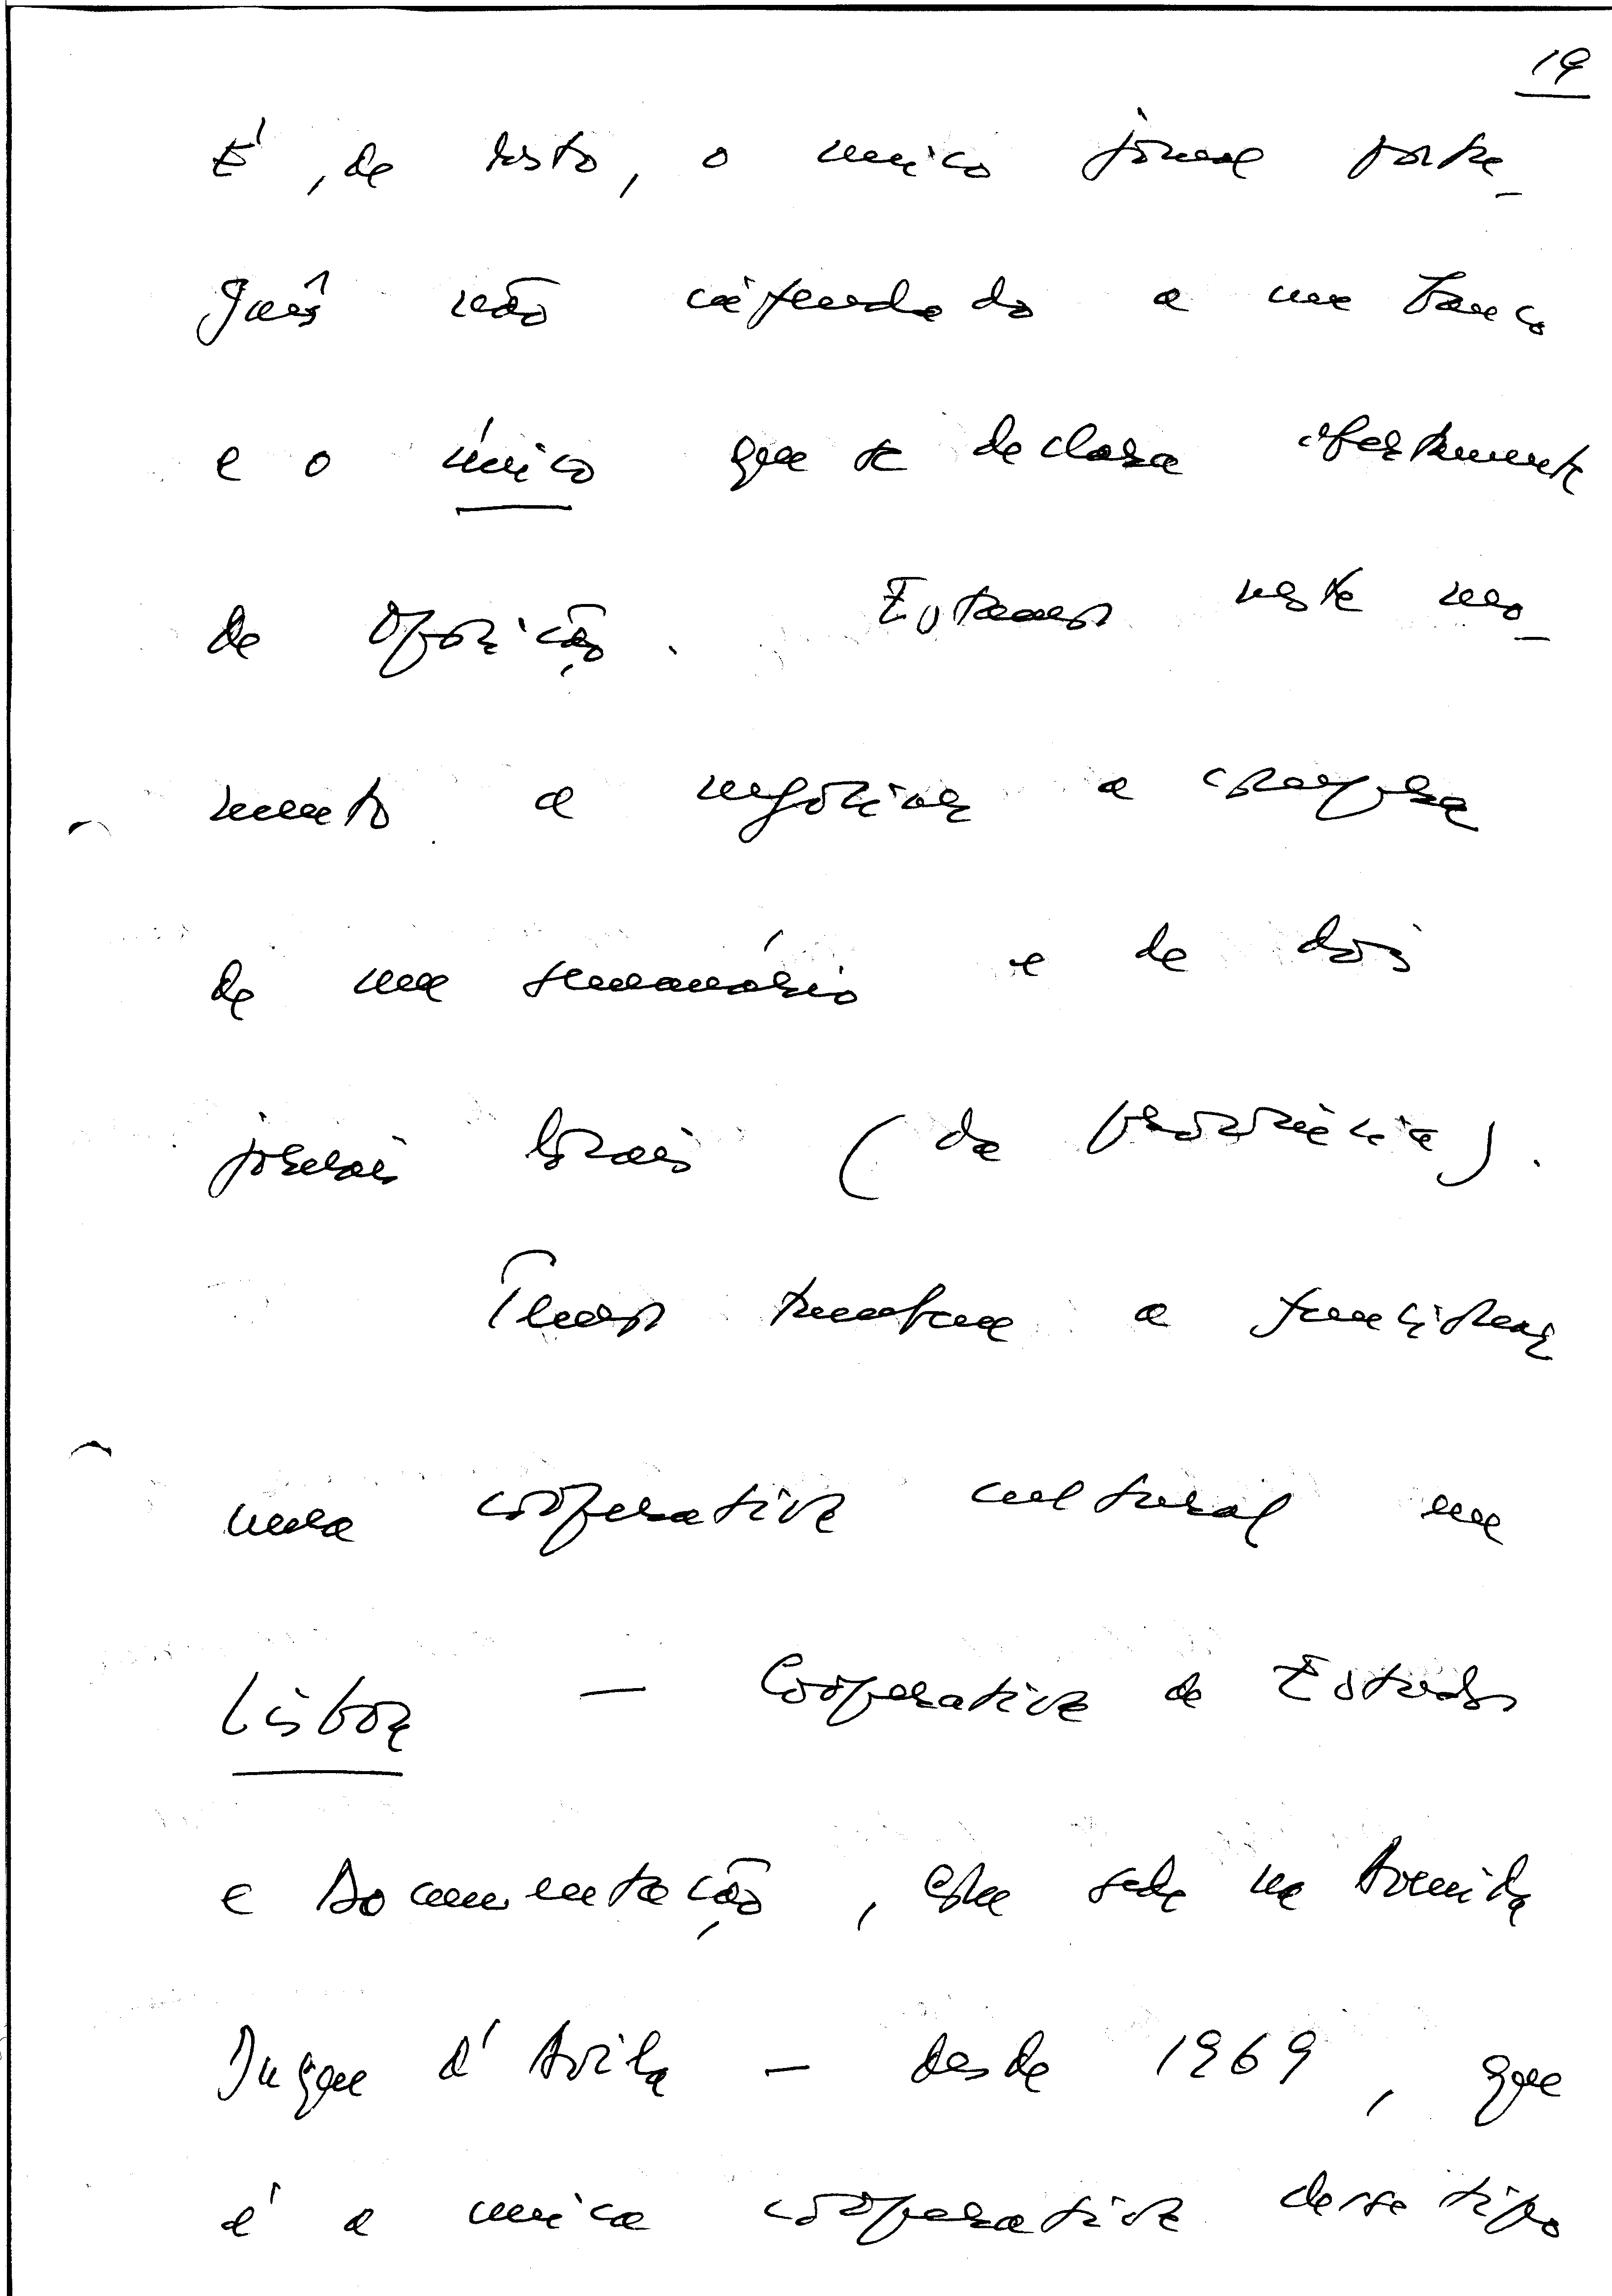 19
É, de resto, o unico jornal portu-
guês não enfeudado a um banco
e o único que se declara abertamente
de Oposição. Estamos neste mo-
mento a negociar a compra
de um semanário e de dois
jornais locais (da província).
Temos tambem a funcionar
uma cooperativa cultural em
Lisboa — Cooperativa de Estudos
e Documentação, com sede na Avenida
Duque d'Avila — desde 1969, que
é a unica cooperativa desse tipo